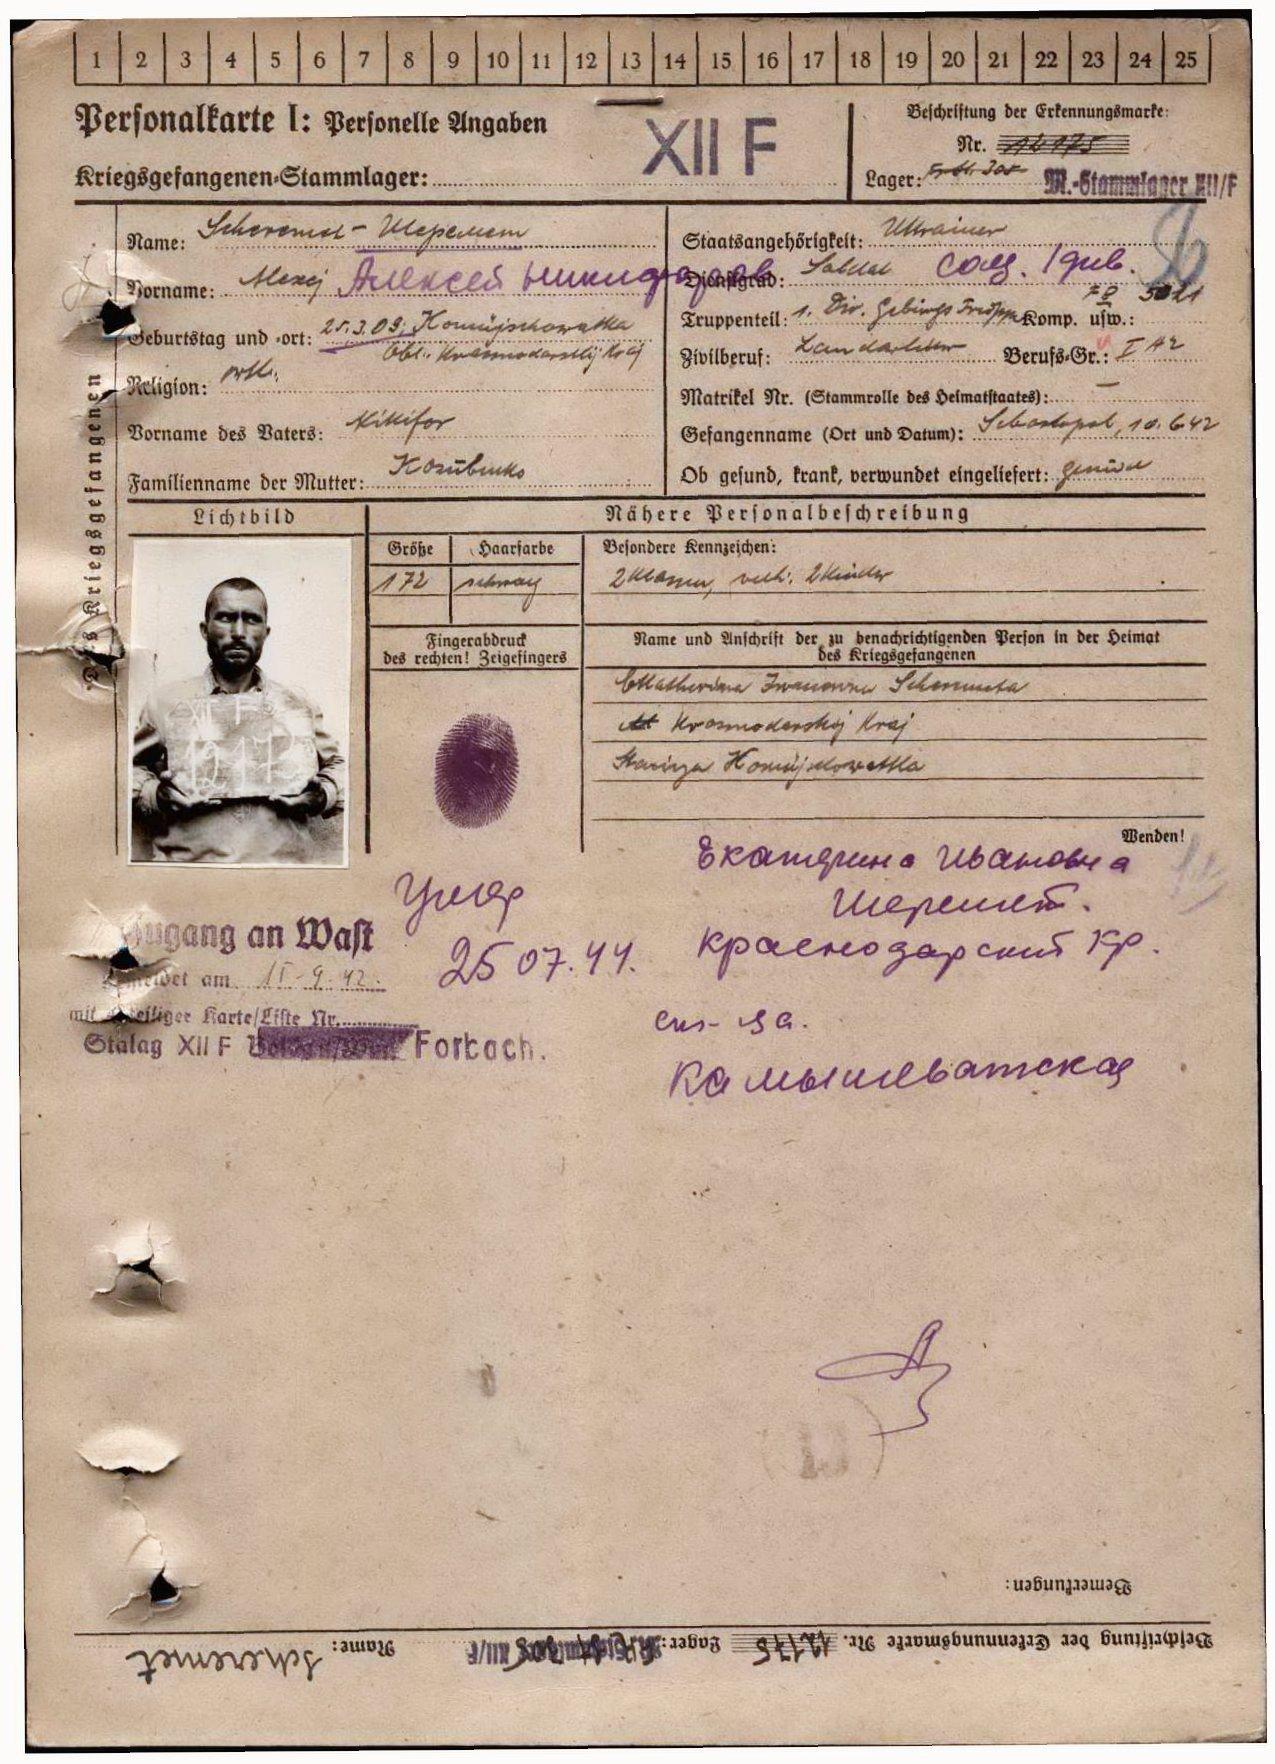 1 2 3 4 5 6 7 8 9 10 11 12 13 14 15 16 17 18 19 20 21 22 23 24 25
Personalkarte I: Personelle Angaben
Kriegsgefangenen-Stammlager:
XII F
Beschriftung der Erkennungsmarke:
Nr. 12175
Lager: M.-Stammlager XII/F
des Kriegsgefangenen
Name: Scheremet - Шеремет
Vorname: Alexej Алексей Никифоров
Geburtstag und -ort: 25.3.09, Komüjschowatka
Obl. Krasnodarskij Kraj
Religion: orth.
Vorname des Vaters: Nikifor
Familienname der Mutter: Kosubenko
Staatsangehörigkeit: Ukrainer
Dienstgrad: Soldat сол. 1 див.
Truppenteil: 1. Div. Gebirgs Komp. usw.:
Zivilberuf: Landarbeiter Berufs-Gr.: I A2
Matrikel Nr. (Stammrolle des Heimatstaates): –
Gefangenname (Ort und Datum): Sebastopol, 10.6.42
Ob gesund, krank, verwundet eingeliefert: gesund
Lichtbild
XII F
12175
Nähere Personalbeschreibung
Größe
Haarfarbe
Besondere Kennzeichen:
172
schwarz
2 Klassen, verh. 2 Kinder
Fingerabdruck
des rechten! Zeigefingers
Name und Anschrift der zu benachrichtigenden Person in der Heimat
des Kriegsgefangenen
Ekatherina Iwanowna Scheremeta
Krasnodarskij Kraj
Staniza Komüjschowatka
Wenden!
Екатерина Ивановна
Шеремет.
Краснодарский кр.
ст-ца.
Камышеватская
Умер
25 07.44.
Zugang an Wast
gemeldet am 15.9.42.
mit Karte/Liste Nr.
Stalag XII F Forbach.
Bemerkungen:
Beschriftung der Erkennungsmarke Nr. 12175 Lager: XII/F Name: Scheremet